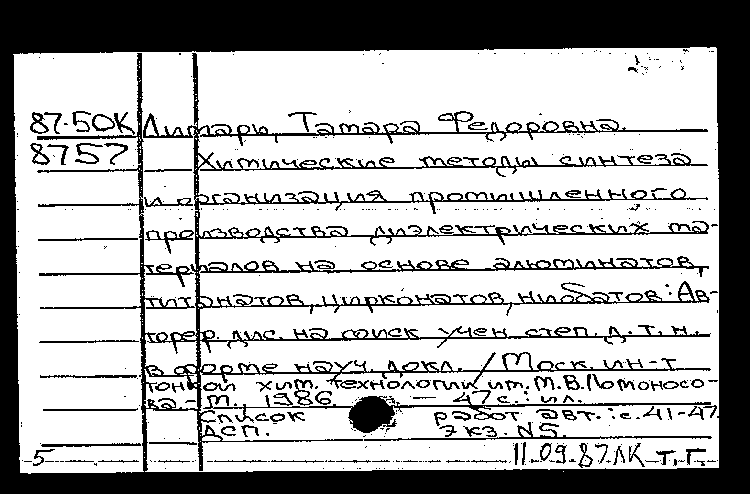 87-50К Лимарь, Тамара Федоровна.
8757 Химические методы синтеза
и организация промышленного
производства диэлектрических ма-
териалов на основе алюминатов,
титанатов, цирконатов, ниобатов: Ав-
тореф. дис. на соиск учен. степ. д. т. н.
в форме науч. докл. / Моск. ин-т
тонкой хим. технологии им. М.В.Ломоносо-
ва. - М., 1986. - 47 с.: ил.
Список работ авт.: с. 41-47.
ДСП. Экз. N5.
5 11.09.87 ЛК Т. Г.